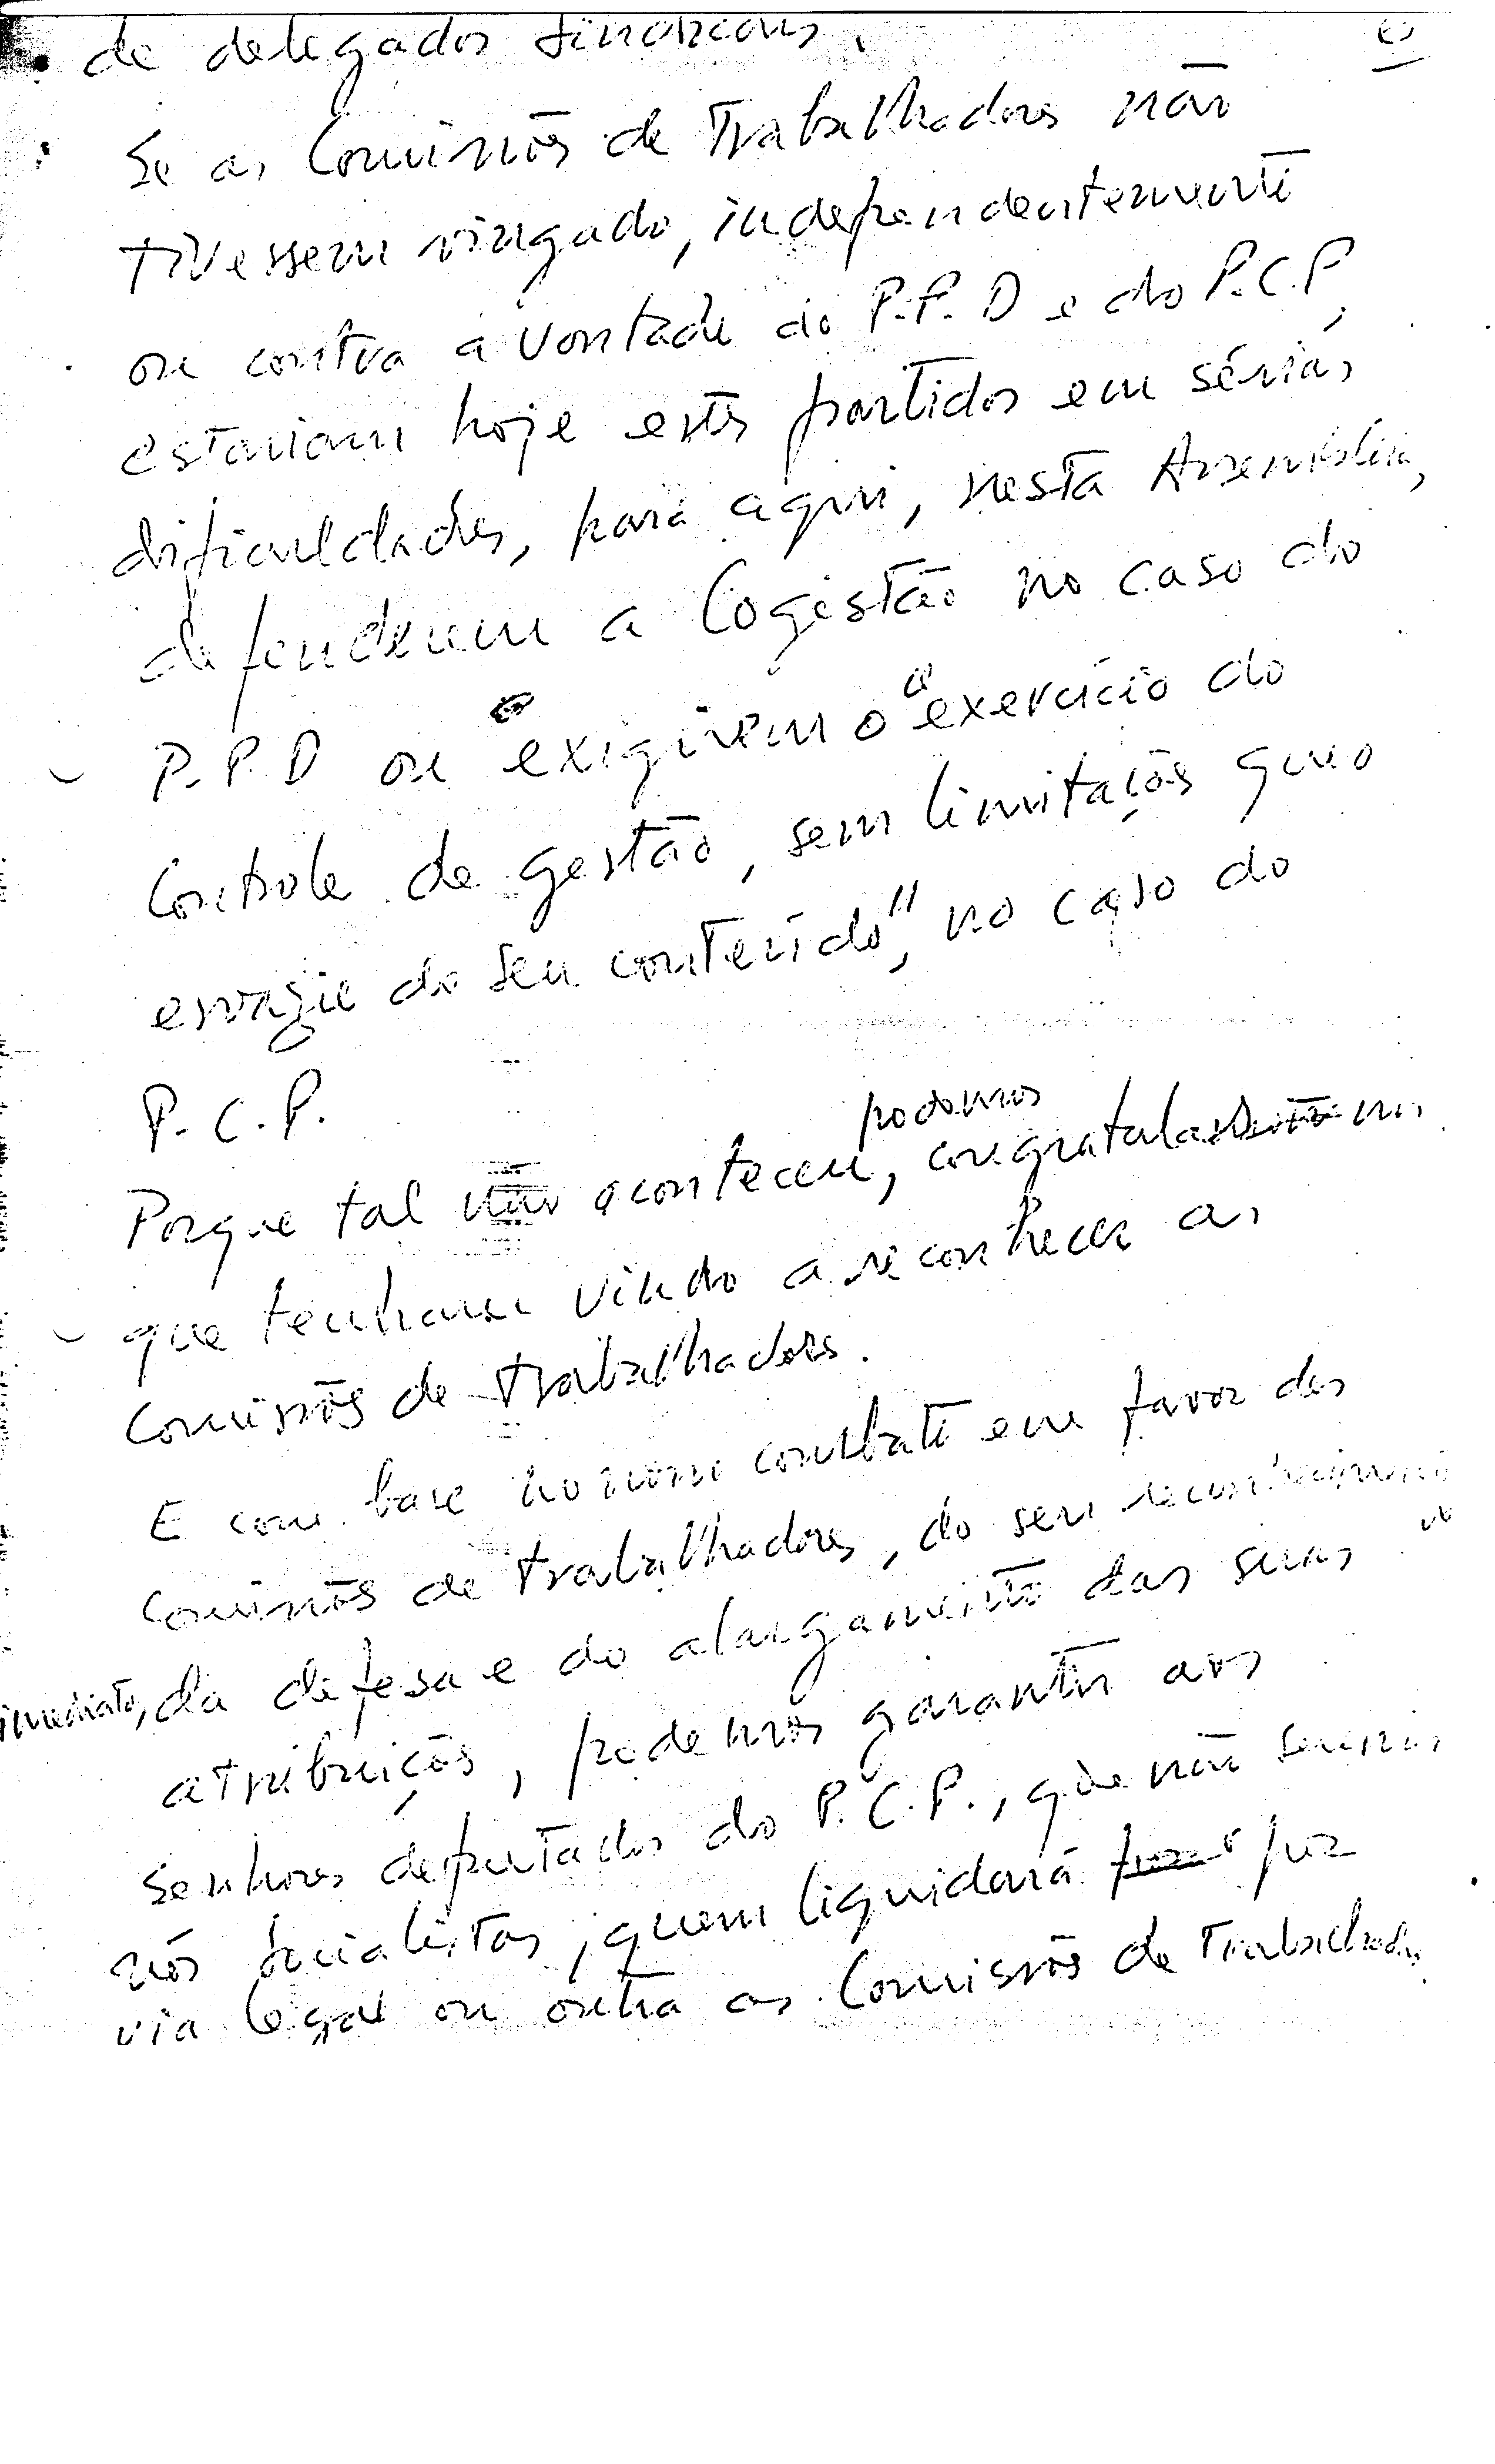 de delegados sindicais.
Se as Comissões de Trabalhadores não
tivessem vingado, independentemente
ou contra a vontade do P.P.D e do P.C.P,
estariam hoje estes partidos em sérias
dificuldades, para aqui, nesta Assembleia,
defenderem a Cogestão no caso do
P.P.D ou exigirem o "exercício do
Controle de gestão, sem limitações que o
esvazie do seu conteúdo", no caso do
P.C.P.
podemos
Porque tal não aconteceu, congratular-nos
que tenham vindo a reconhecer as
Comissões de trabalhadores.
E com base no nosso combate em favor das
Comissões de trabalhadores, do seu reconhecimento
imediato, da defesa e do alargamento das suas
atribuições, podemos garantir aos
Senhores deputados do P.C.P., que não seremos
nós socialistas, quem liquidará por
via legal ou outra as Comissões de Trabalhadores